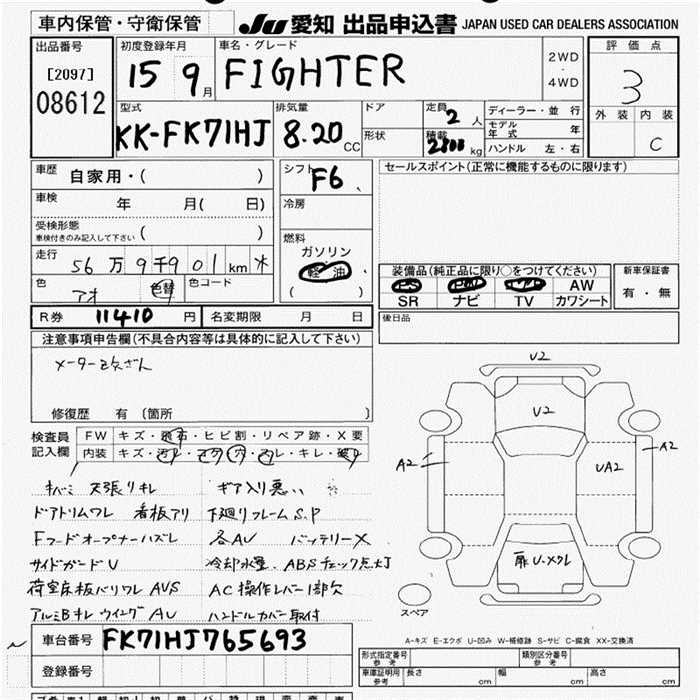 車内保管・守衛保管
JU 愛知 出品申込書 JAPAN USED CAR DEALERS ASSOCIATION
出品番号 初度登録年月 車名・グレード 評価点
[2097] 15 9月 FIGHTER 2WD・4WD 3
08612
型式 排気量 ドア 定員 2人 ディーラー・並行 外装 内装
KK-FK71HJ 8.20CC 形状 積載 kg モデル年式 年 C
ハンドル 左・右
車歴 自家用・( ) シフト F6 セールスポイント(正常に機能するものに限ります)
車検 年 月( 日) 冷房
受検形態 車検付きのみ記入して下さい ( ) 燃料
ガソリン
走行 56万9千901km 軽油 装備品(純正品に限り○をつけてください) 新車保証書
色 アオ 色替 色コード ( ) PS PW AW 有・無
SR ナビ TV カワシート
R券 11410円 名変期限 月 日 後日品
注意事項申告欄(不具合内容等は具体的に記入して下さい)
メーター
修復歴 有 (箇所 )
検査員記入欄 FW キズ・飛石・ヒビ割・リペア跡・X要
内装 キズ・
・キレ・
V2
V2
A2
A2
UA2
天張リキレ ギア入り悪い
ドアトリムワレ 看板アリ 下廻リフレームS.P
Fフードオープナーハズレ 各AU バッテリーX
サイドガードU 冷却水量 ABSチェック点灯
荷室床板バリワレ AVS AC操作レバー1部欠
アルミBキレ ウイングAU ハンドルカバー取付
扉U・メクレ
スペア
A-キズ E-エクボ U-凹み W-補修跡 S-サビ C-腐食 XX-交換済
車台番号 FK71HJ765693
登録番号
形式指定番号 参考 類別区分番号 参考
車庫証明用 参考 長さ cm 幅 cm 高さ cm